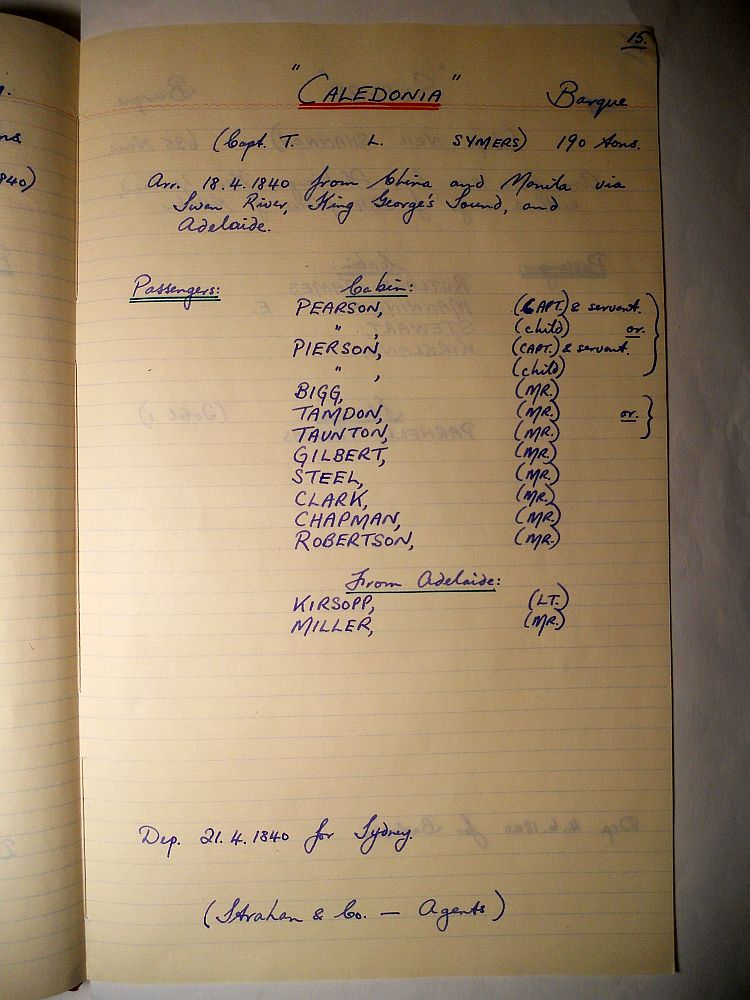 15.
"CALEDONIA" Barque
(Capt. T. L. SYMERS) 190 tons.
Arr. 18.4.1840 from China and Manila via
Swan River, King George's Sound, and
Adelaide.
Passengers: Cabin:
PEARSON, (CAPT.) & servant.
" , (child) or.
PIERSON, (CAPT.) & servant.
" , (child)
BIGG, (MR.)
TAMDON, (MR.) or.
TAUNTON, (MR.)
GILBERT, (MR.)
STEEL, (MR.)
CLARK, (MR.)
CHAPMAN, (MR.)
ROBERTSON, (MR.)
From Adelaide:
KIRSOPP, (LT.)
MILLER, (MR.)
Dep. 21.4.1840 for Sydney.
(Strahan & Co. — Agents)